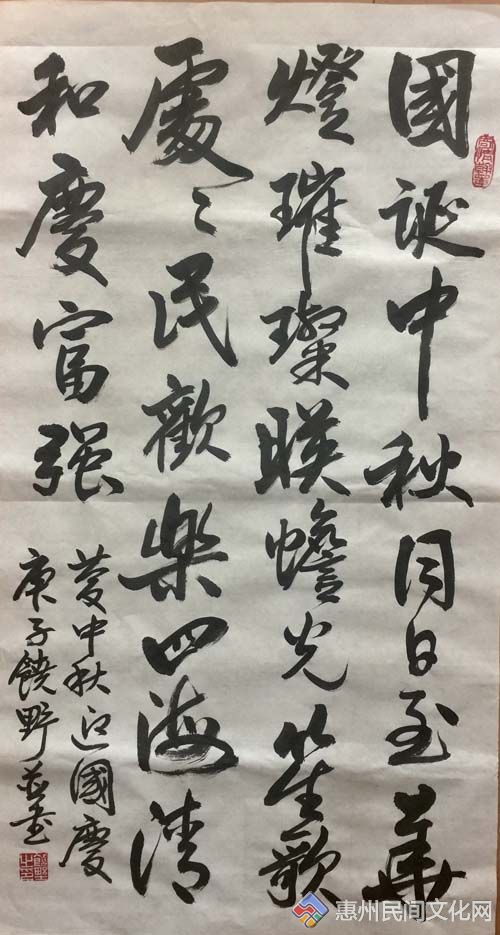 國诞中秋同日至華
燈璀璨暎蟾光笙歌
處々民歡樂四海清
和慶富强
慶中秋迎國慶
庚子饒野并書
惠州民间文化网